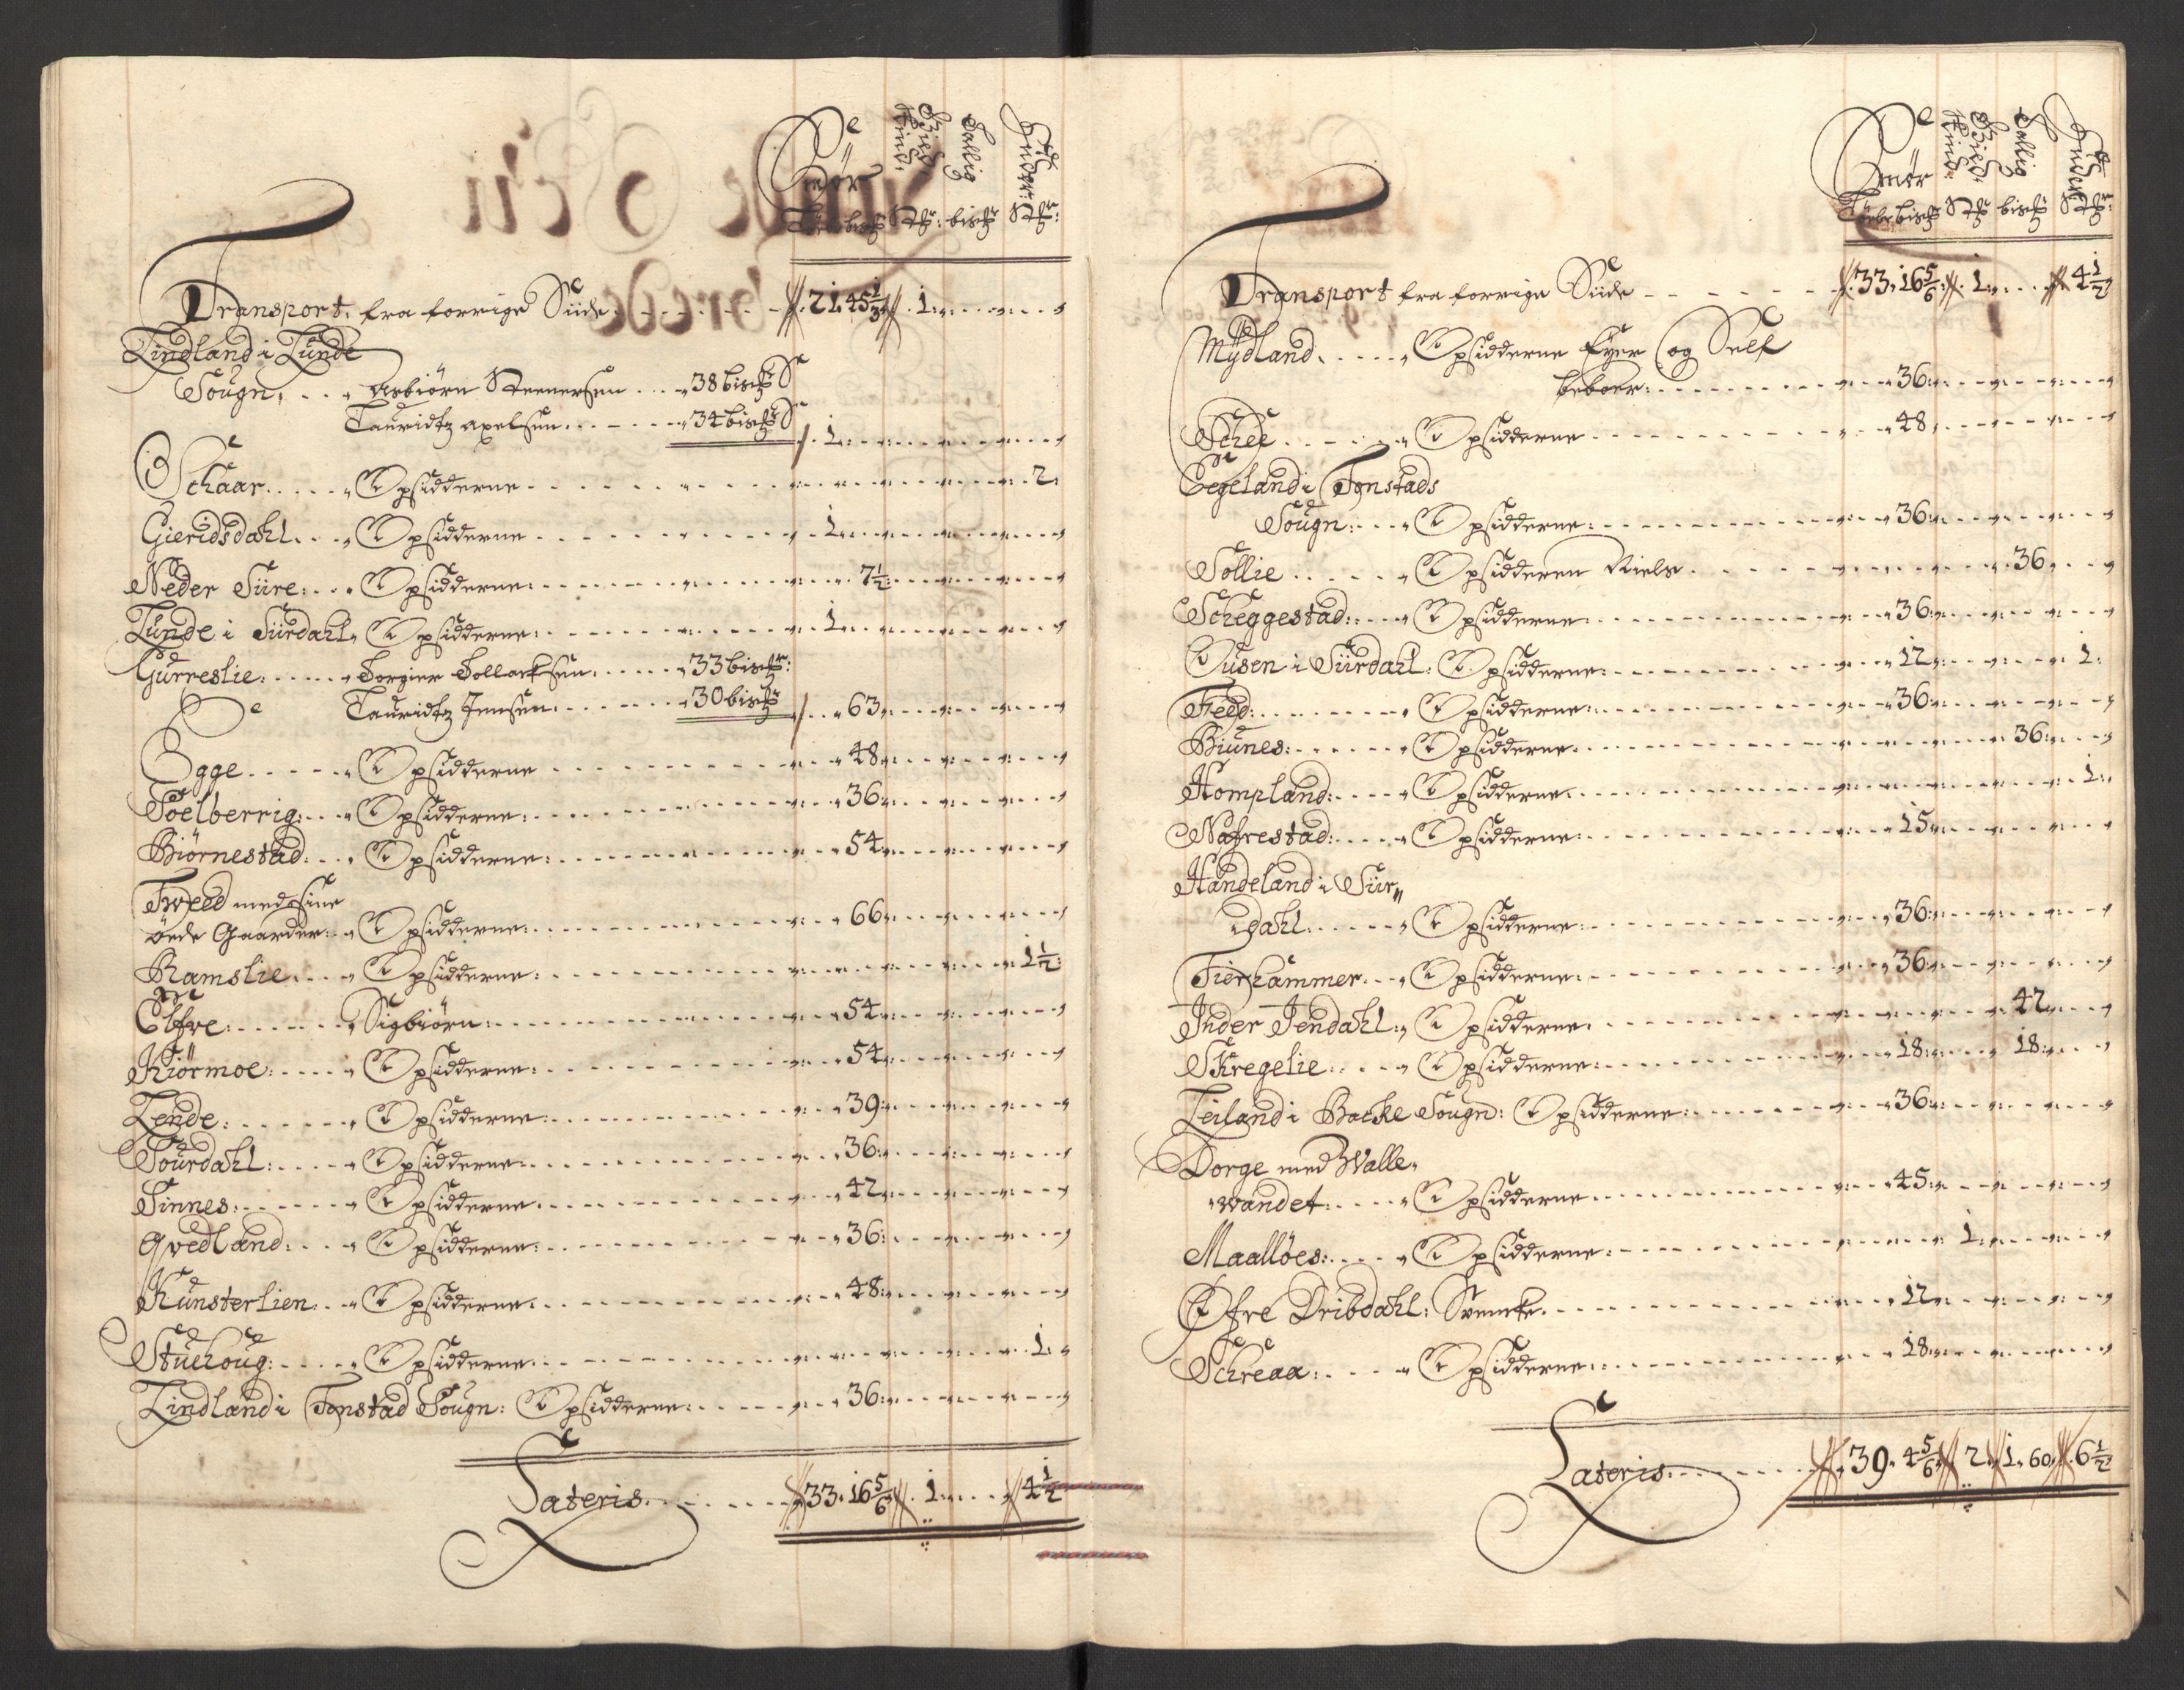 Smör
Hud.
Talliig
Tüder bispd bispd
Transport fra forrige Siide 21. 45 1/3 1
Lindland i Lunde
Sougn Asbiörn Steenersen 38 bispd
Lauridtz Axelsen 34 bispd 1
Schaar Opsidderne 2
Gieridsdahl Opsidderne 1
Neder Siire Opsidderne 7 1/2
Lunde i Siirdahl Opsidderne 1
Gurreslie Torgier Tollachsen 33 bispd
Lauridtz Jensen 30 bispd 63
Egge Opsidderne 48
Soelberrig Opsidderne 36
Biörnestad Opsidderne 54
Tweed med sine
öede Gaarder Opsidderne 66
Ramslie Opsidderne 1 1/2
Ølfre Sigbiörn 54
Kiörmoe Opsidderne 54
Lende Opsidderne 39
Sourdahl Opsidderne 36
Sinnes Opsidderne 42
Qvedland Opsidderne 36
Kunsterlien Opsidderne 48
Stuehoug Opsidderne 1
Lindland i Tonstad Sougn: Opsidderne 36
Lateris 33. 16 5/6 1 4 1/2
Smör
Hud
Tallig
bispd bispd
Transport fra forrige Siide 33. 16 5/6 1 4 1/2
Mydland Opsidderne Eyer og Self
beboer 36
Schee Opsidderne 48
Egeland i Tonstads
Sougn Opsidderne 36
Sollie Opsidderen Niels 36
Scheggestad Opsidderne 36
Ousen i Siirdahl Opsidderne 12 1
Feed Opsidderne 36
Biunes Opsidderne 36
Hompland Opsidderne 1
Nafrestad Opsidderne 15
Handeland i Siir„
dahl Opsidderne 36
Fierhammer Opsidderne 36
Inder Jendahl Opsidderne 42
Skregelie Opsidderne 18 18
Leiland i Backe Sougn: Opsidderne 36
Dorge med Walle„
wandet Opsidderne 45
Maallöes Opsidderne 1
Øfre Dribdahl: Svencke 12
Schreaa Opsidderne 18
Lateris 39. 4 5/6 2 1. 60 6 1/2